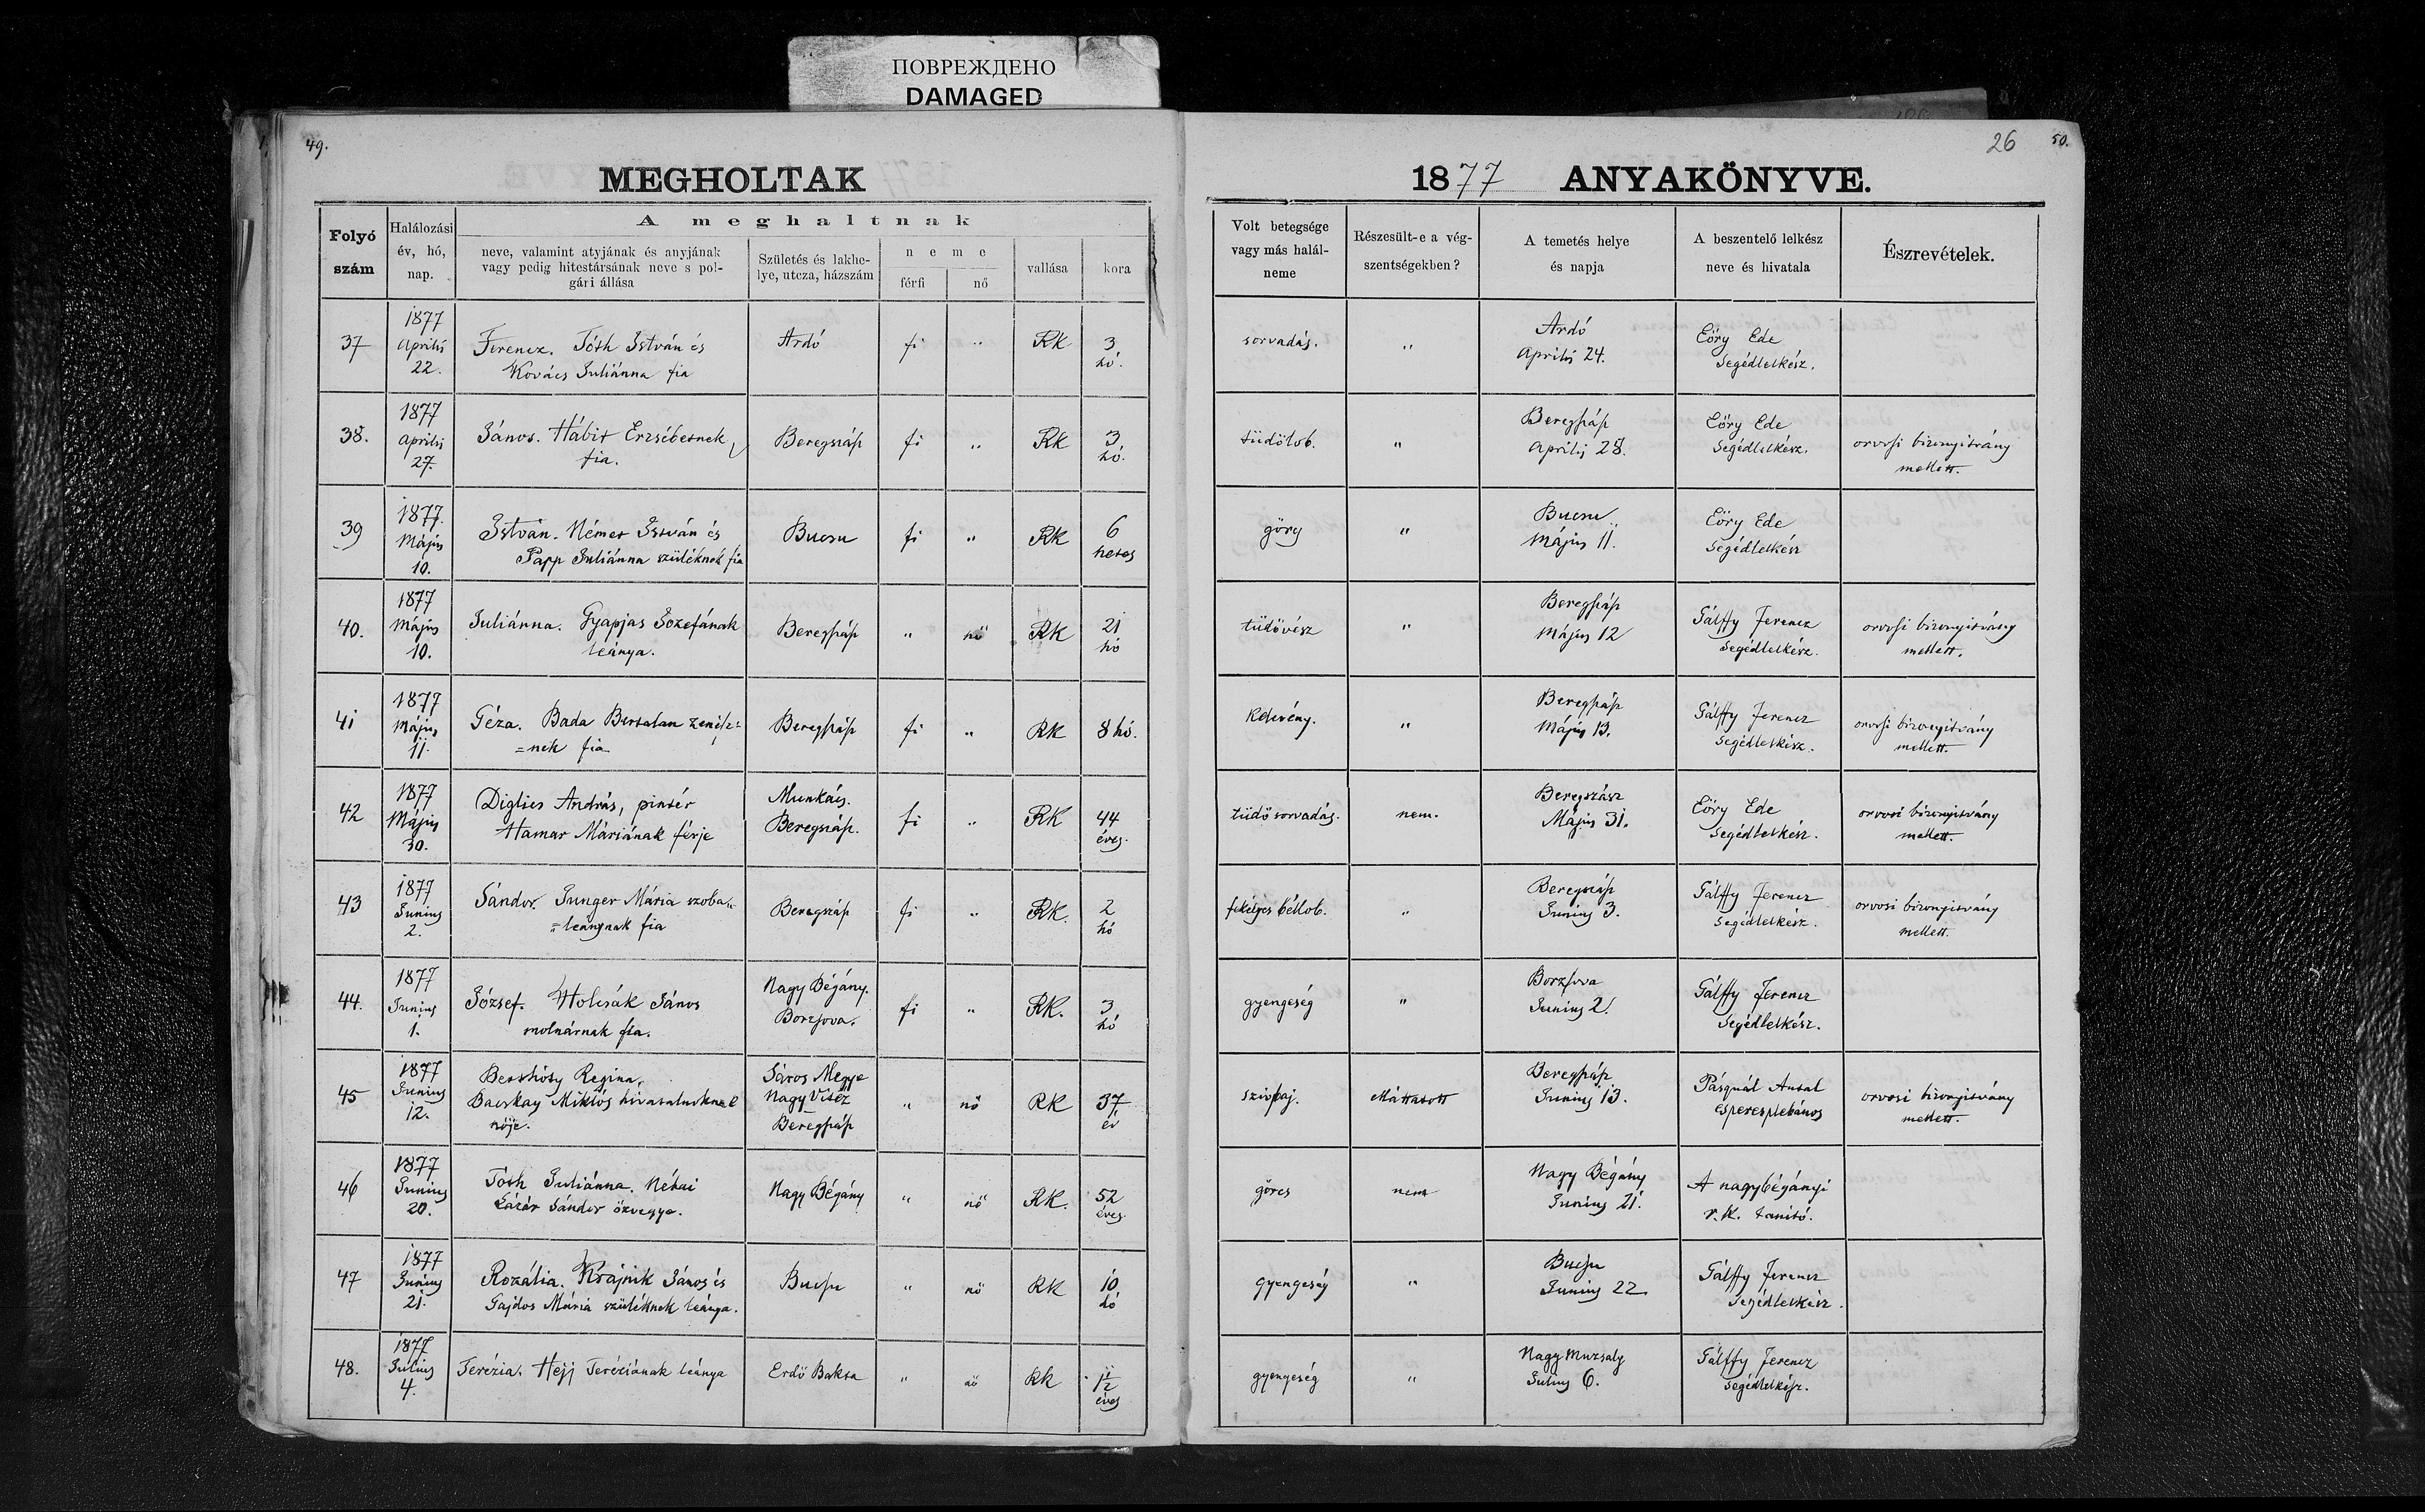 ПОВРЕЖДЕНО
DAMAGED
49.
MEGHOLTAK
Folyó szám
Halálozási év, hó, nap.
A meghaltnak
neve, valamint atyjának és anyjának vagy pedig hitestársának neve s polgári állása
Születés és lakhelye, utcza, házszám
neme
férfi
nő
vallása
kora
37 1877 Április 22. Ferencz. Tóth István és Kovács Juliánna fia Ardó fi " RK 3 hó.
38. 1877 Április 27. János. Hábit Erzsébetnek fia. Beregszász fi " RK 3 hó.
39 1877. Május 10. István. Német István és Papp Juliánna szüléknek fia Bucsu fi " RK 6 hetes
40. 1877 Május 10. Juliánna. Gyapjas Jozefának leánya. Beregszász " nő RK 21 hó
41 1877 Május 11. Géza. Bada Bertalan zenész= =nek fia Beregszász fi " RK 8 hó.
42 1877 Május 30. Diglics András, pintér Hamar Máriának férje Munkács. Beregszász. fi " RK 44 éves.
43 1877 Junius 2. Sándor. Junger Mária szoba= =leánynak fia Beregszász fi " RK. 2 hó
44. 1877 Junius 1. József. Holcsák János molnárnak fia. Nagy Bégány. Borzsova. fi " RK. 3 hó
45 1877 Junius 12. Regina, Bacskay Miklós hivatalnoknak nője. Sáros Megye Nagy Vitéz Beregszász " nő RK 37 év
46 1877 Junius 20. Tóth Juliánna. Néhai Lázár Sándor özvegye. Nagy Bégány " nő RK. 52 éves
47 1877 Junius 21. Rozália. Krajnik János és Gajdos Mária szüléknek leánya. Bucsu " nő RK 10 hó
48. 1877 Julius 4. Terézia. Hejj Teréziának leánya Erdő Baksa " nő RK 1/2 éves
26 50.
1877 ANYAKÖNYVE.
Volt betegsége vagy más halálneme
Részesült-e a végszentségekben?
A temetés helye és napja
A beszentelő lelkész neve és hivatala
Észrevételek.
sorvadás. " Ardó Április 24. Eőry Ede Segédlelkész.
tüdőlob. " Beregszász Április 28. Eőry Ede Segédlelkész. orvosi bizonyitvány mellett.
görg " Bucsu Május 11. Eőry Ede Segédlelkész
tüdővész " Beregszász Május 12 Gálffy Ferencz Segédlelkész. orvosi bizonyitvány mellett.
Kelevény. " Beregszász Május 13. Gálffy Ferencz Segédlelkész. orvosi bizonyitvány mellett.
tüdő sorvadás. nem. Beregszász Május 31. Eőry Ede Segédlelkész. orvosi bizonyitvány mellett.
fekélyes béllob. " Beregszász Junius 3. Gálffy Ferencz Segédlelkész. orvosi bizonyitvány mellett.
gyengeség " Borzsova Junius 2. Gálffy Ferencz Segédlelkész.
szivbaj. elláttatott Beregszász Junius 13. Pásquál Antal esperesplébános orvosi bizonyitvány mellett.
görcs nem Nagy Bégány Junius 21. A nagybégányi r.k. tanitó.
gyengeség " Bucsu Junius 22. Gálffy Ferencz Segédlelkész.
gyengeség " Nagy Muzsaly Julius 6. Gálffy Ferencz Segédlelkész.